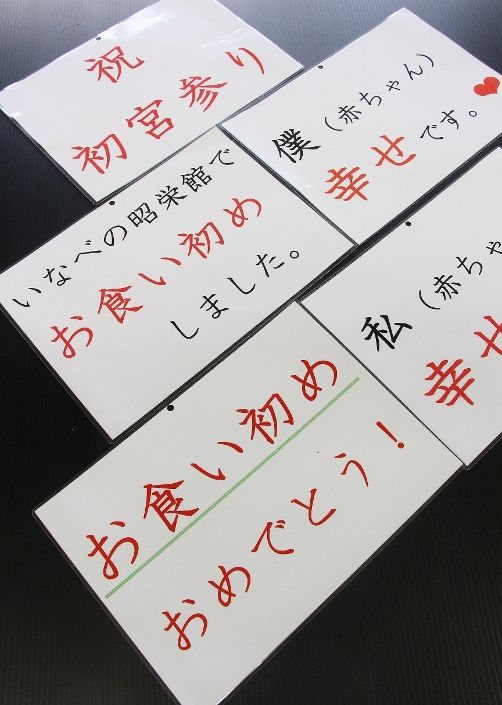 祝
初宮参り
僕(赤ちゃん)
幸せです。
いなべの昭栄館で
お食い初め
しました。
私(赤ちゃ
幸せ
お食い初め
おめでとう！